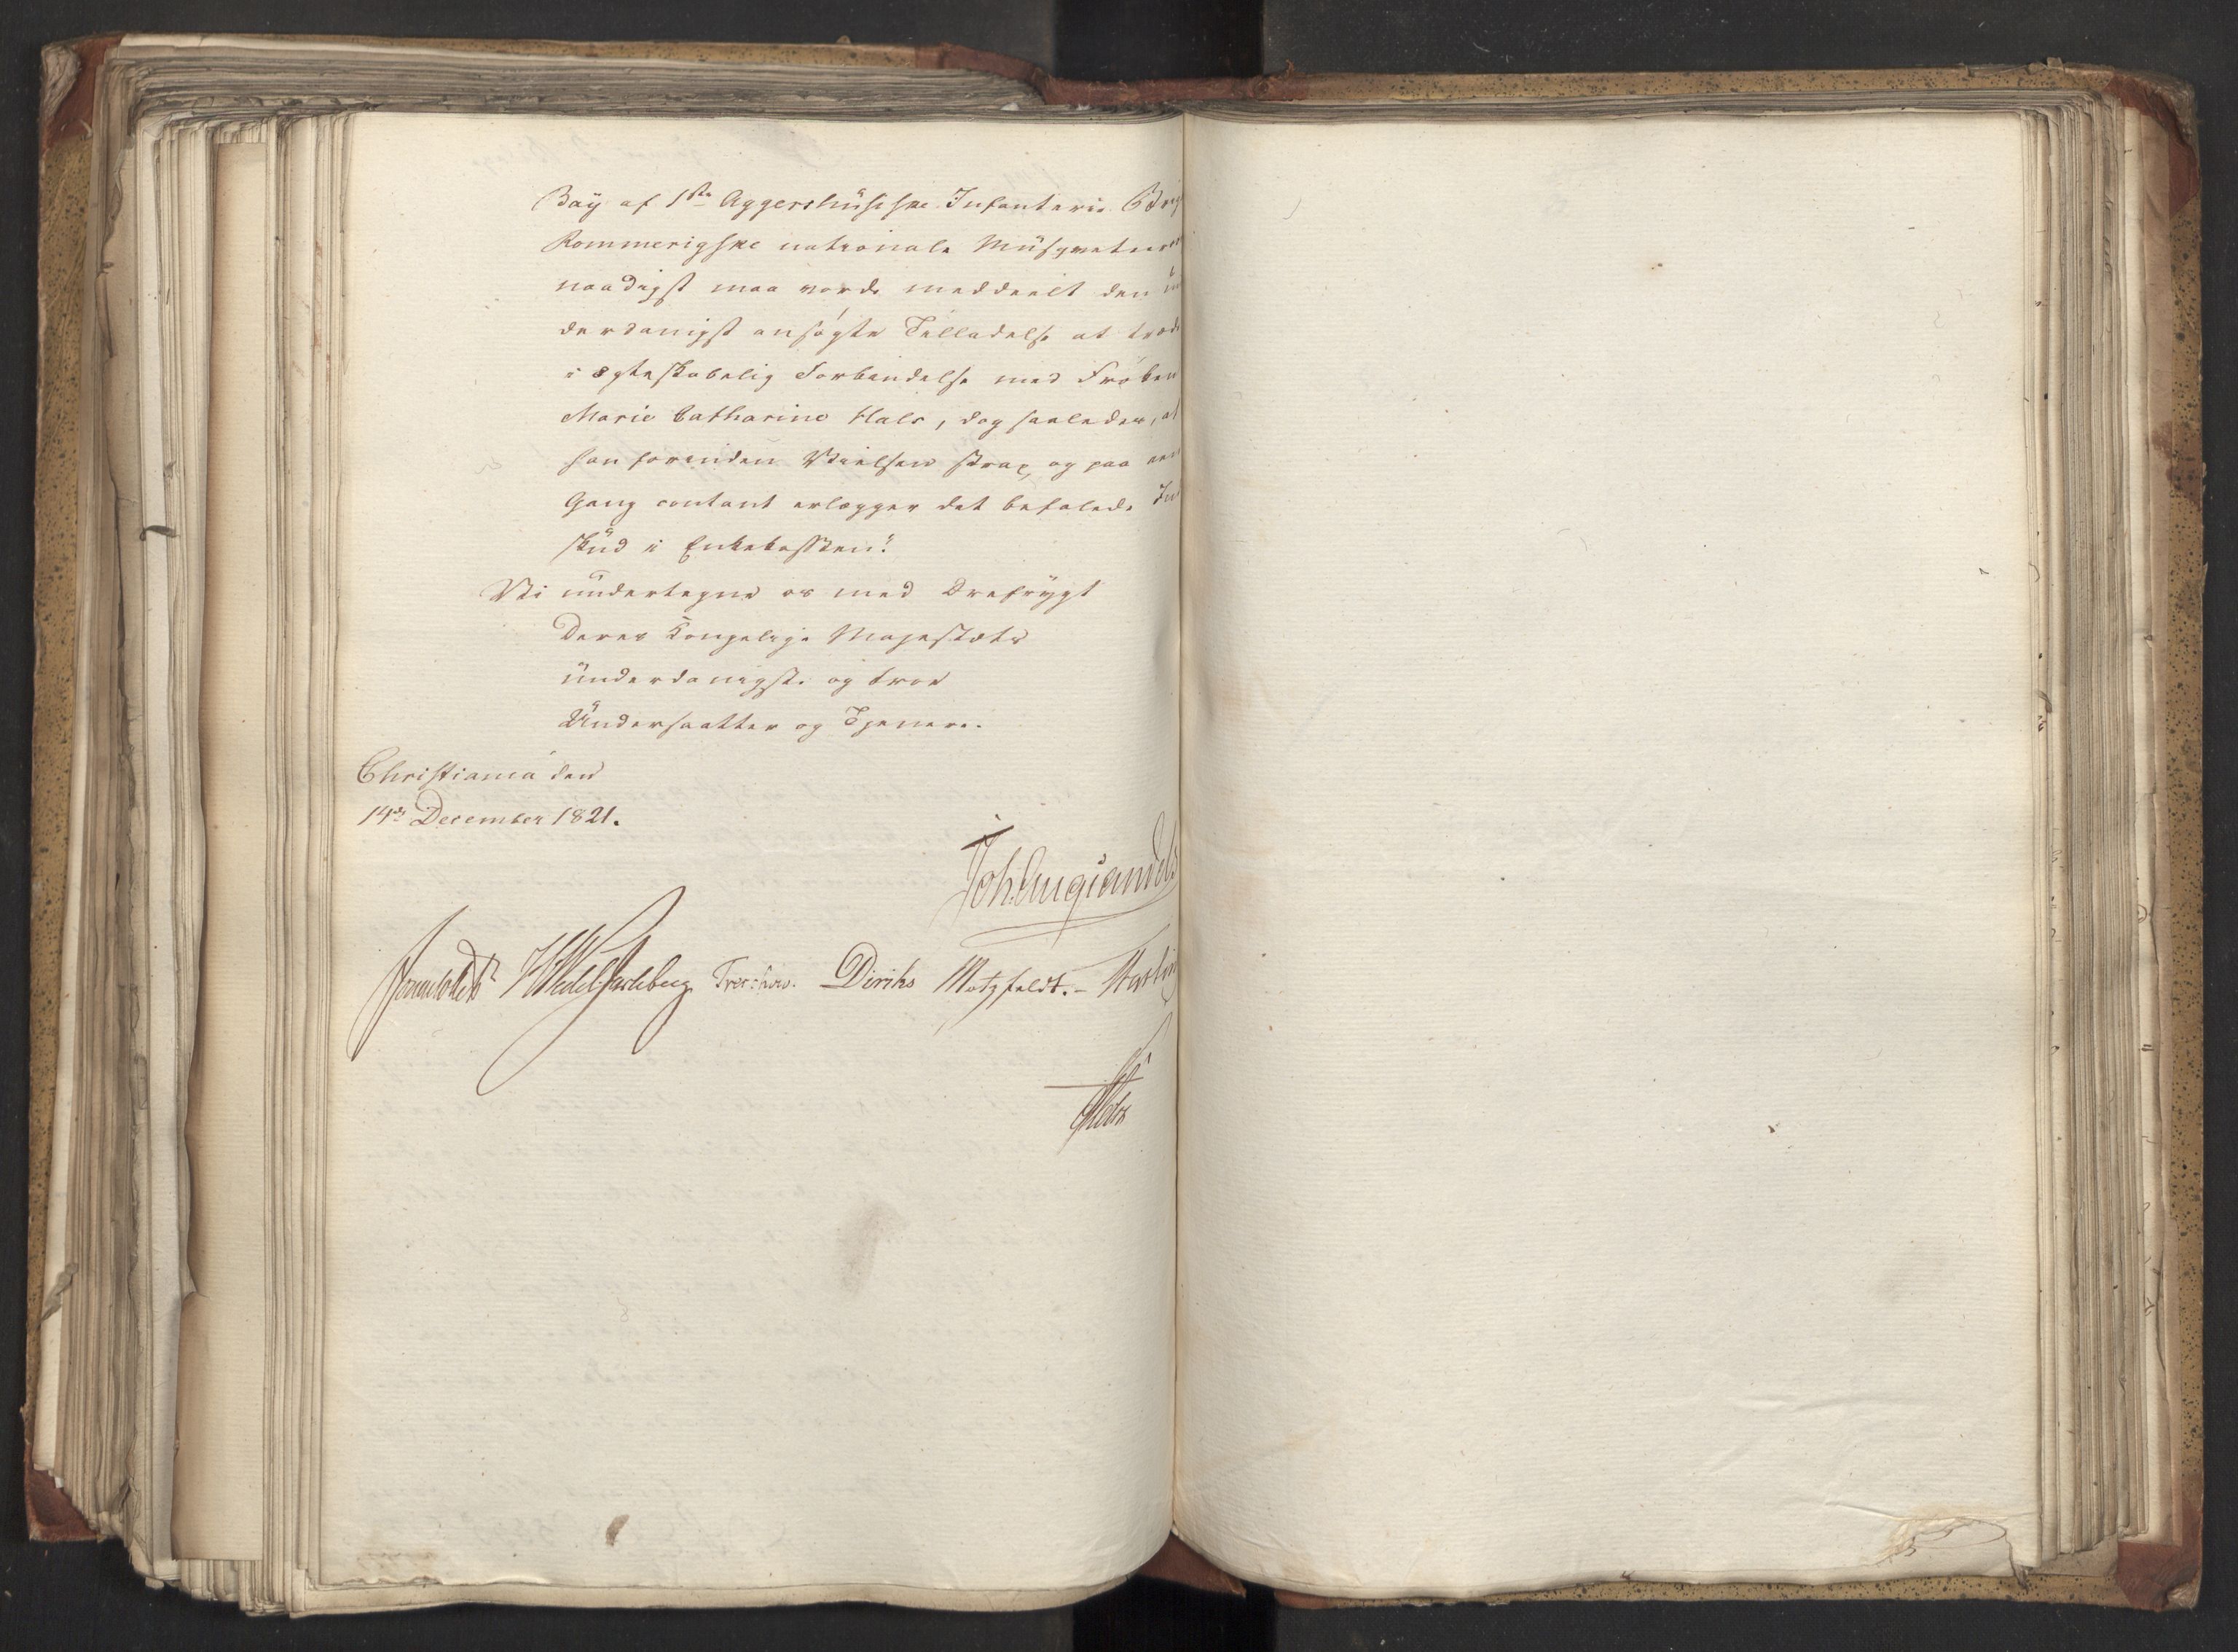 Bay af 1ste Aggershusiske Infanterie Brig
Rommerigske nationale Musqveteer
naadigst maa vorde meddeelt den un
derdanigst ansøgte Tilladelse at træde
i ægteskabelig Forbindelse med Frøken
Marie Catharine Hals, dog saaledes, at
han forinden Vielsen strax og paa een
Gang contant erlægger det befalede Ind
skud i Enkekassen."
Vi undertegne os med Ærefrygt
Deres Kongelige Majestæts
underdanigste og troe
Undersaatter og Tjenere.
Christiania den
14de December 1821.
Joh. Aug. Sandels
Sommerhielm HWedel Jarlsberg Treschow. Diriks Motzfeldt.- Fasting